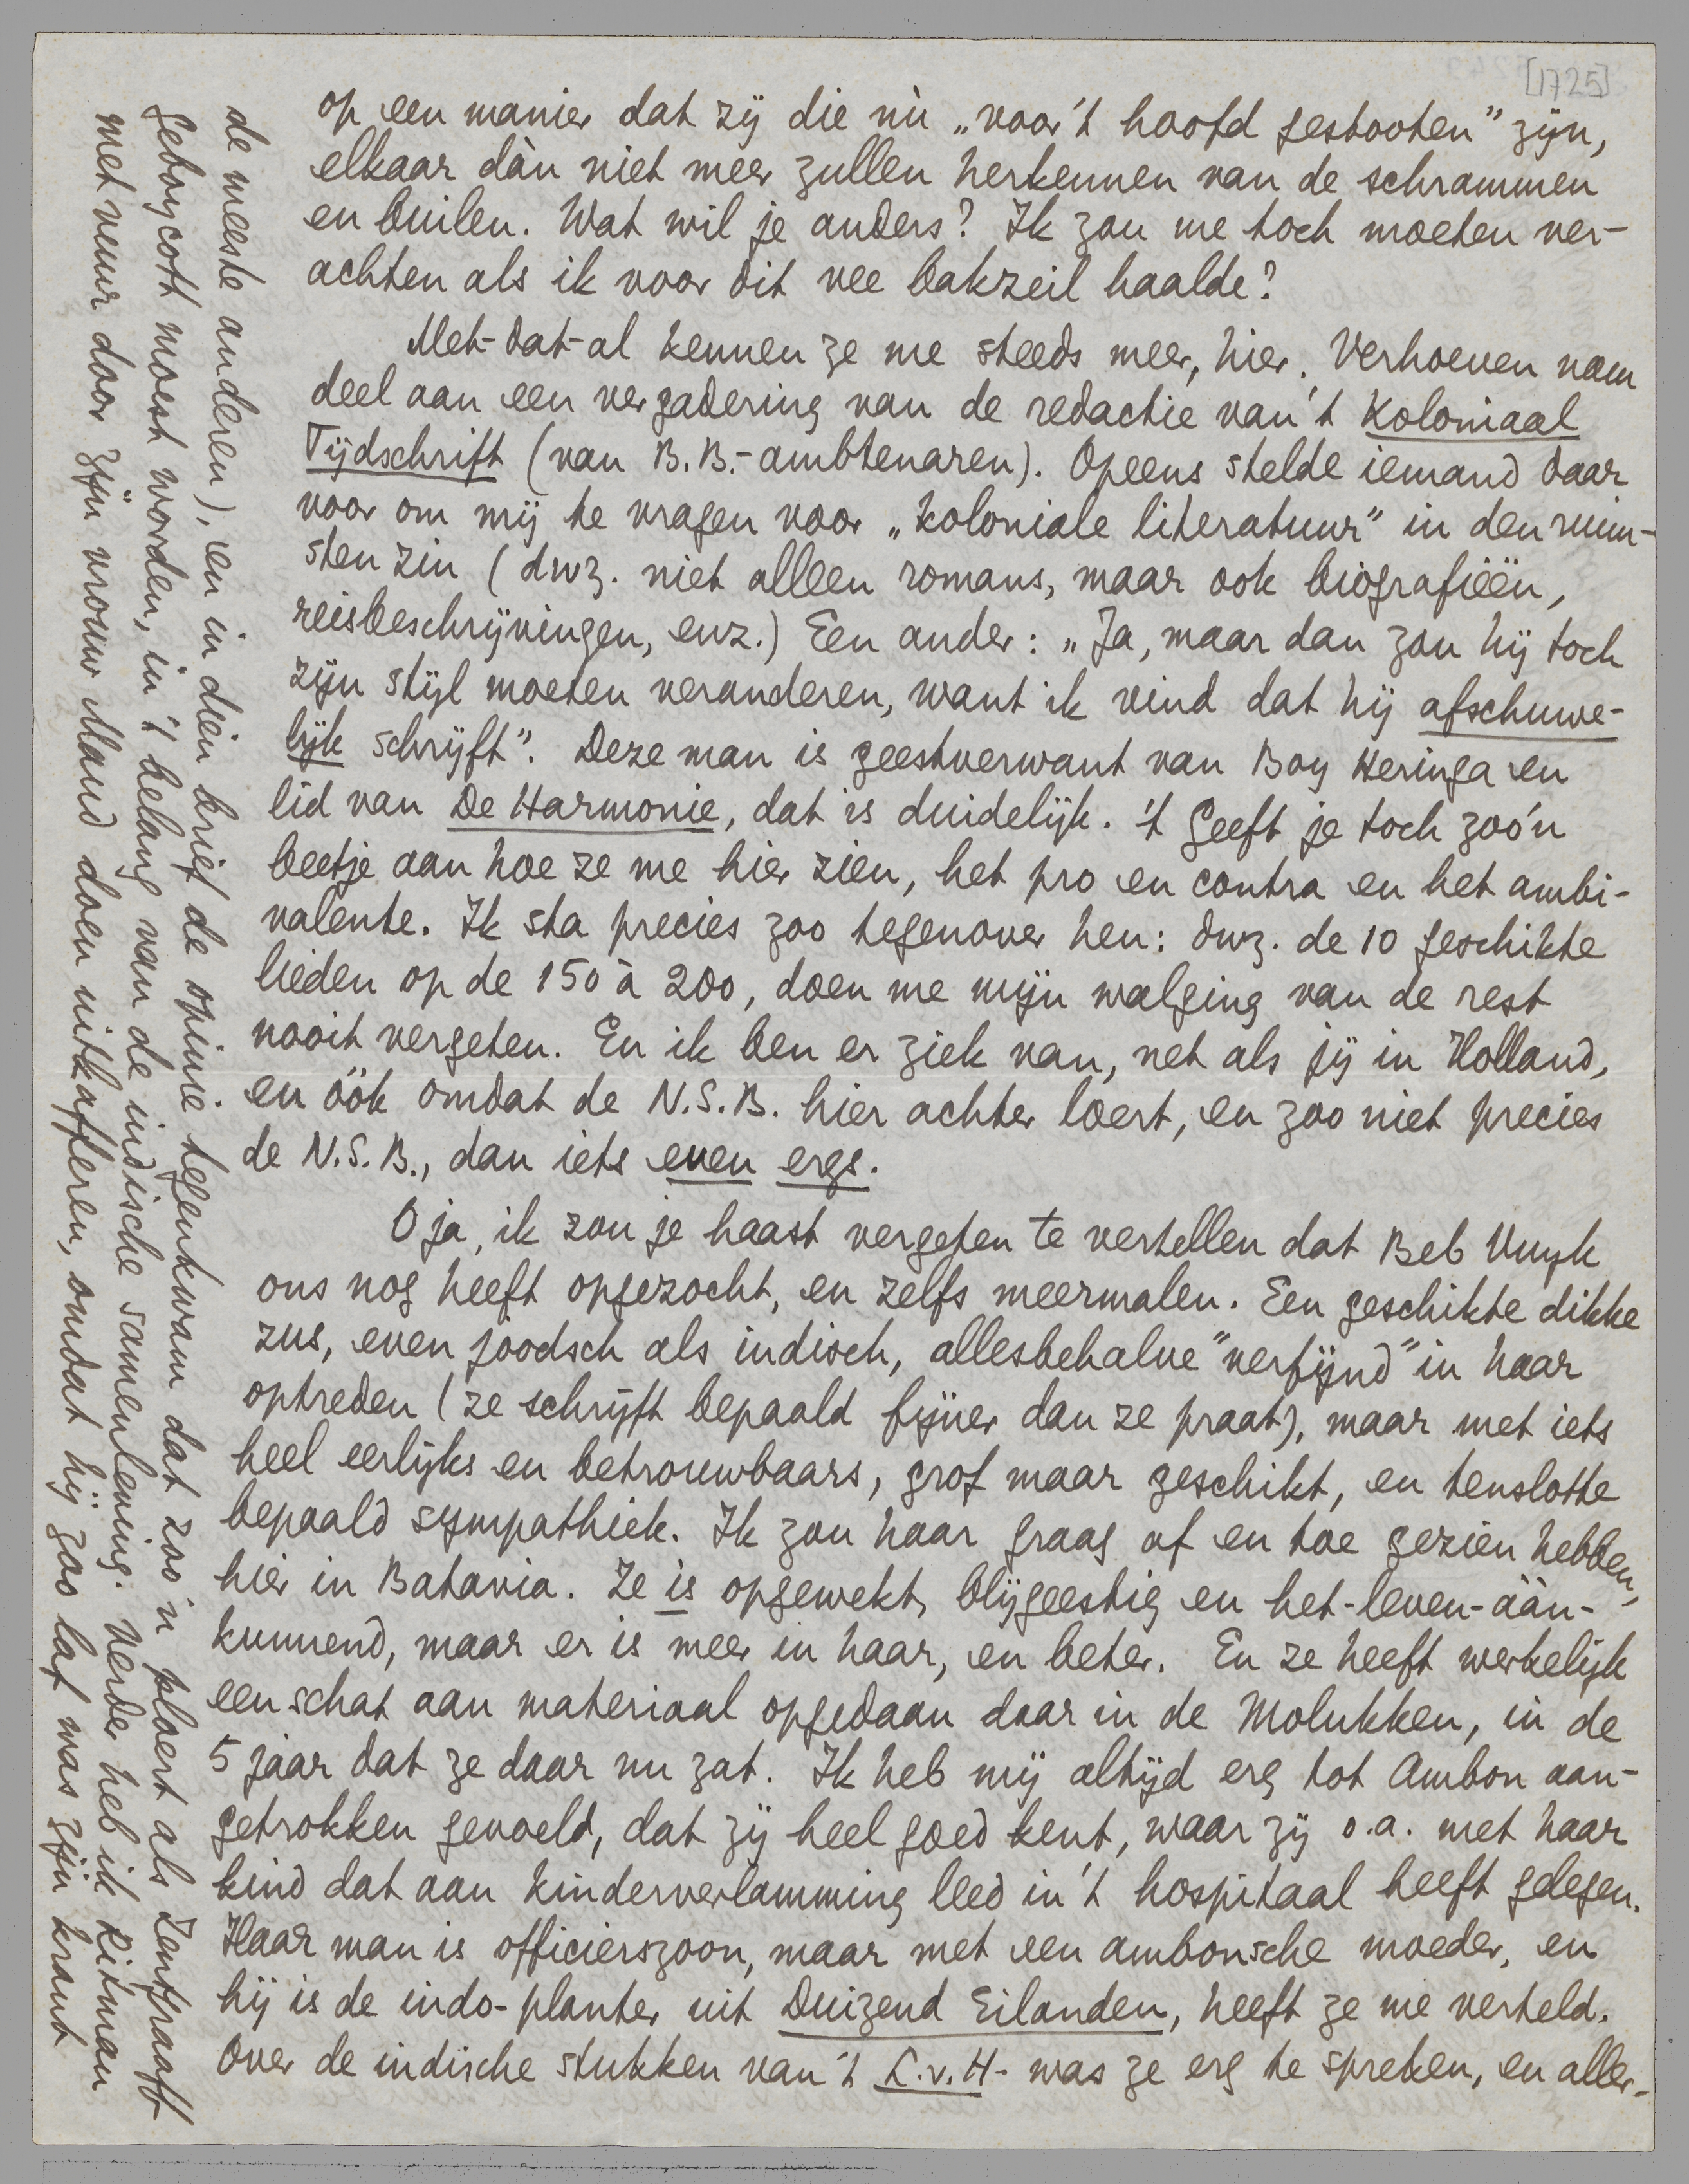 [1725]
op een manier dat zij die nù „voor 't hoofd gestooten" zijn,
elkaar dàn niet meer zullen herkennen van de schrammen
en builen. Wat wil je anders? Ik zou me toch moeten ver-
achten als ik voor dit vee bakzeil haalde?
Met-dat-al kennen ze me steeds meer, hier. Verhoeven nam
deel aan een vergadering van de redactie van 't Koloniaal
Tijdschrift (van B.B.-ambtenaren). Opeens stelde iemand daar
voor om mij te vragen voor „koloniale literatuur" in den ruim-
sten zin (dwz. niet alleen romans, maar ook biografieën,
reisbeschrijvingen, enz.) Een ander: „Ja, maar dan zou hij toch
zijn stijl moeten veranderen, want ik vind dat hij afschuwe-
lijk schrijft". Deze man is geestverwant van Boy Heringa en
lid van De Harmonie, dat is duidelijk. 't Geeft je toch zoo'n
beetje aan hoe ze me hier zien, het pro en contra en het ambi-
valente. Ik sta precies zoo tegenover hen: dwz. de 10 geschikte
lieden op de 150 à 200, doen me mijn walging van de rest
nooit vergeten. En ik ben er ziek van, net als jij in Holland,
en óók omdat de N.S.B. hier achter loert, en zoo niet precies
de N.S.B., dan iets even ergs.
O ja, ik zou je haast vergeten te vertellen dat Beb Vuyk
ons nog heeft opgezocht, en zelfs meermalen. Een geschikte dikke
zus, even joodsch als indisch, allesbehalve "verfijnd" in haar
optreden (ze schrijft bepaald fijner dan ze praat), maar met iets
heel eerlijks en betrouwbaars, grof maar geschikt, en tenslotte
bepaald sympathiek. Ik zou haar graag af en toe gezien hebben,
hier in Batavia. Ze is opgewekt, blijgeestig en het-leven-áán-
kunnend, maar er is meer in haar, en beter. En ze heeft werkelijk
een schat aan materiaal opgedaan daar in de Molukken, in de
5 jaar dat ze daar nu zat. Ik heb mij altijd erg tot Ambon aan-
getrokken gevoeld, dat zij heel goed kent, waar zij o.a. met haar
kind dat aan kinderverlamming leed in 't hospitaal heeft gelegen.
Haar man is officierszoon, maar met een ambonsche moeder, en
hij is de indo-planter uit Duizend Eilanden, heeft ze me verteld.
Over de indische stukken van 't L.v.H- was ze erg te spreken, en aller-
de meeste anderen), en in dien brief de opinie tegenkwam dat zoo'n ploert als Zentgraaff
geboycott moest worden, in 't belang van de indische samenleving. Verder heb ik Ritman
met vuur door zijn vrouw Maud doen uitkafferen, omdat hij zoo laf was zijn krant